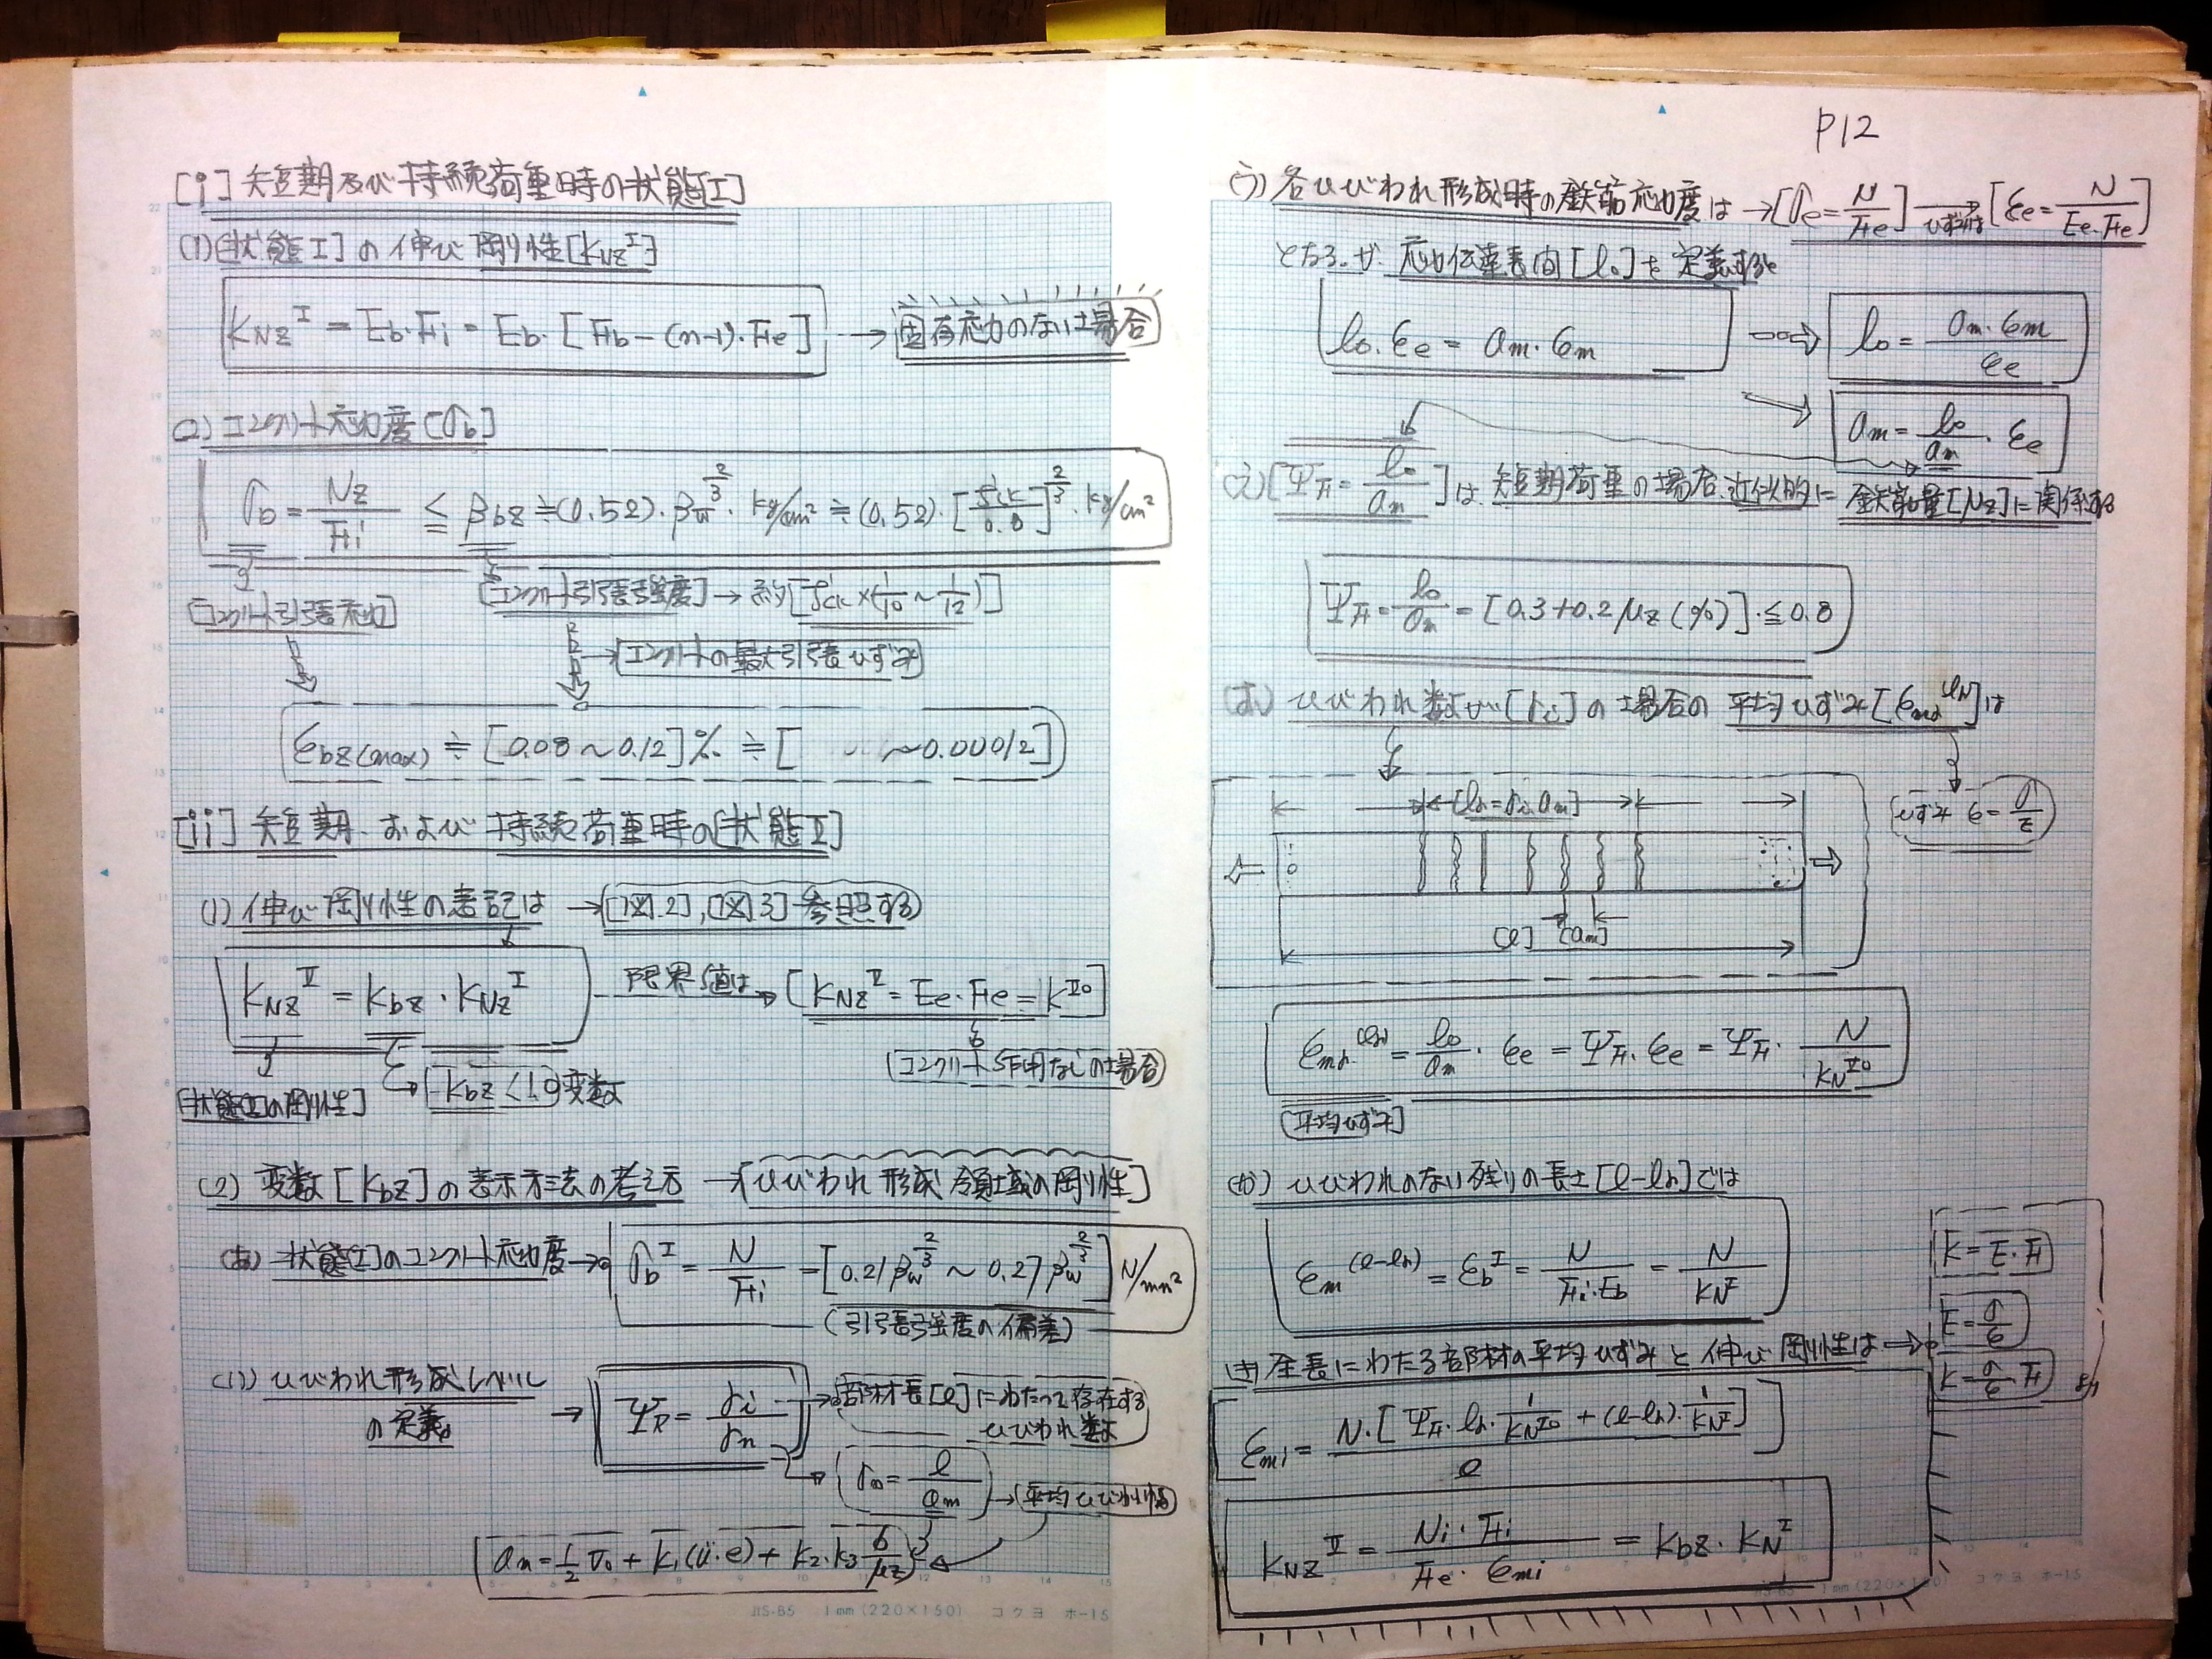 [i] 短期及び持続荷重時の状態[I]
(1) [状態I]の伸び剛性[K_NZ^I]
K_NZ^I = Eb・Fi = Eb・[Fb-(n-1)・Fe] → 固有応力のない場合
(2) コンクリート応力度[σb]
σb = Nz/Fi ≦ βbz ≒ (0.52)・βw^(2/3)・kg/cm² ≒ (0.52)・[fck/0.8]^(2/3)・kg/cm²
[コンクリート引張応力] [コンクリート引張強度] → 約[fck×(1/10~1/12)]
→ [コンクリートの最大引張ひずみ]
εbz(max) ≒ [0.08~0.12]‰ ≒ [ ~0.00012]
[ii] 短期、および持続荷重時の[状態II]
(1) 伸び剛性の表記は → [図.2],[図3]参照する
K_NZ^II = Kbz・K_NZ^I 限界値は → [K_NZ^II = Ee・Fe = K^II0]
[コンクリート 作用なしの場合]
[状態IIの剛性] [Kbz<1.0]変数
(2) 変数[Kbz]の表示方法の考え方 → [ひびわれ形成領域の剛性]
(あ) 状態[I]のコンクリート応力度 → σb^I = N/Fi = [0.21βw^(2/3) ~ 0.27βw^(2/3)] N/mm²
(引張強度の偏差)
(い) ひびわれ形成レベル
の定義。 → Ψr = ri/rn → 部材長[l]にわたって存在する
ひびわれ数
rn = l/am → [平均ひびわれ幅]
am = 1/2 v0 + K1(ü・e) + K2・K3 b/μz
JIS-B5 1mm(220×150) コクヨ ホ-15
P12
う) 各ひびわれ形成時の鉄筋応力度は → [σe = N/Fe] ひずみは → [εe = N/(Ee・Fe)]
となる。が、応力伝達長間[l0]を定義すると
l0・εe = am・εm ⇒ l0 = am・εm/εe
⇒ am = l0/am・εe
(え) [ΨF = l0/am]は、短期荷重の場合、近似的に鉄筋量[μz]に関係する
ΨF = l0/am = [0.3+0.2μz(%)]・≦0.8
(お) ひびわれ数が[ri]の場合の平均ひずみ[εmr^(lr)]は
[lr=ri・am]
(ひずみ ε = σ/E)
[l] [am]
εmr^(lr) = l0/am・εe = ΨF・εe = ΨF・N/KN^II0
[平均ひずみ]
(か) ひびわれのない残りの長さ[l-lr]では
εm^(l-lr) = εb^I = N/(Fi・Eb) = N/KN^I
K=E・F
E=σ/ε
K=σ/ε・F
(き) 全長にわたる部材の平均ひずみと伸び剛性は ⇒
εmi = N・[ΨF・lr・1/KN^II0 + (l-lr)・1/KN^I] / l
K_NZ^II = Ni・Fi/(Fe・εmi) = Kbz・KN^I
JIS-B5 1mm(220×150) コクヨ ホ-15